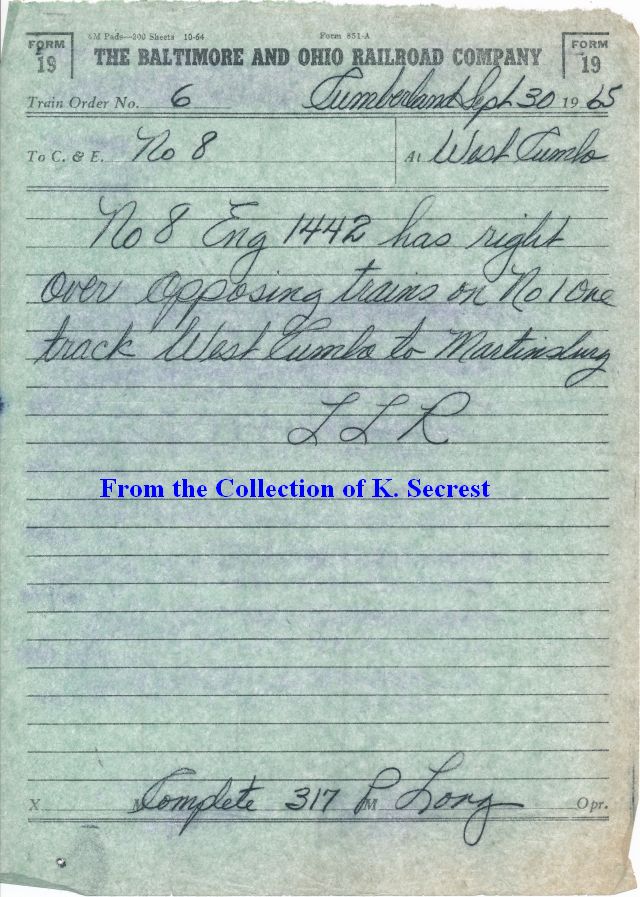 6M Pads—200 Sheets 10-64 Form 831-A
FORM 19 THE BALTIMORE AND OHIO RAILROAD COMPANY FORM 19
Train Order No. 6 Cumberland Sept 30 1965
To C. & E. No 8 At West Cumbo
No 8 Eng 1442 has right
over opposing trains on No 1 one
track West Cumbo to Martinsburg
L L R
From the Collection of K. Secrest
X M Complete 317 P M Long Opr.